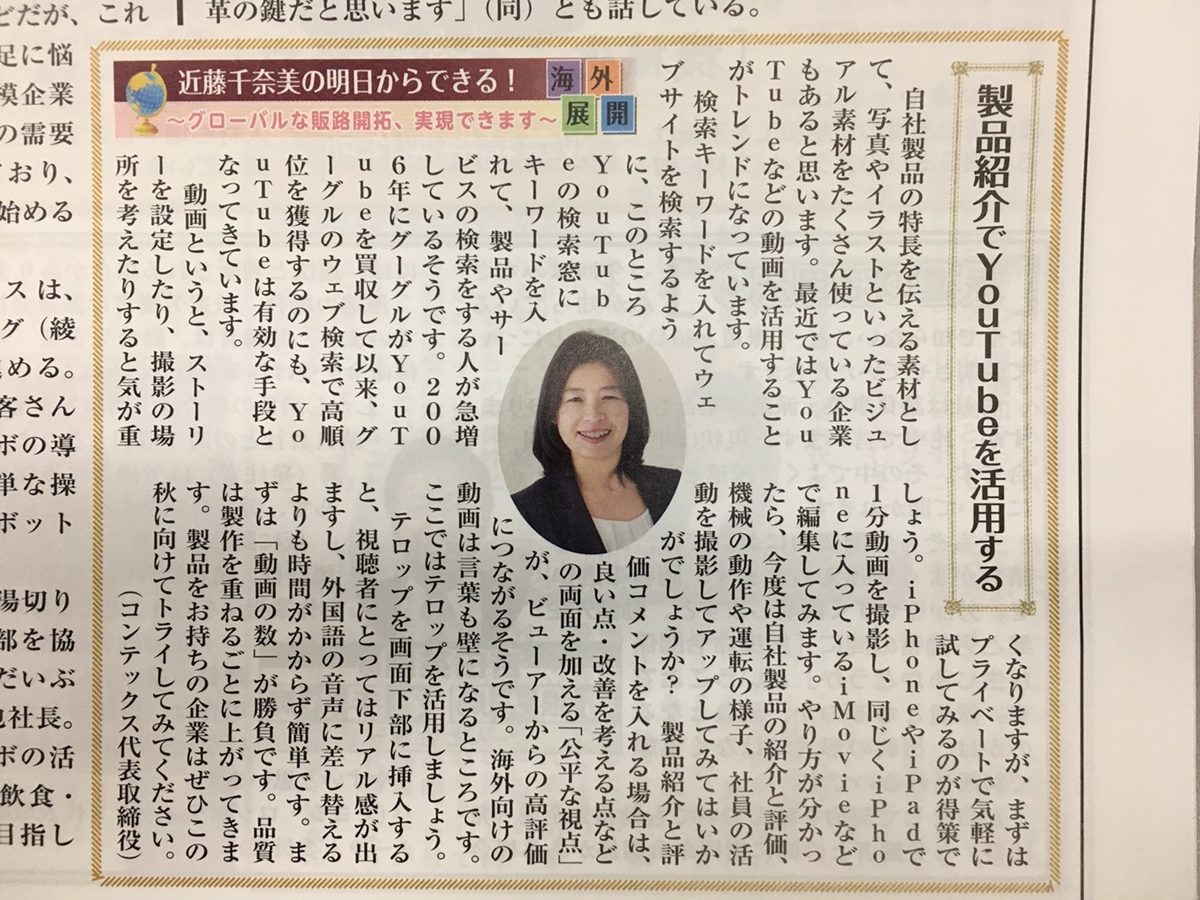 どだが、これ
革の鍵だと思います」(同)とも話している。
足に悩
模企業
の需要
ており、
始める
スは、
グ(綾
進める。
客さん
ボの導
単な操
ボット
湯切り
部を協
だいぶ
也社長。
ボの活
飲食・
目指し
近藤千奈美の明日からできる!
海外
展開
～グローバルな販路開拓、実現できます～
製品紹介でYouTubeを活用する
自社製品の特長を伝える素材とし
て、写真やイラストといったビジュ
アル素材をたくさん使っている企業
もあると思います。最近ではYou
Tubeなどの動画を活用すること
がトレンドになっています。
検索キーワードを入れてウェ
ブサイトを検索するよう
に、このところ
YouTub
eの検索窓に
キーワードを入
れて、製品やサー
ビスの検索をする人が急増
しているそうです。200
6年にグーグルがYouT
ubeを買収して以来、グ
ーグルのウェブ検索で高順
位を獲得するのにも、Yo
uTubeは有効な手段と
なってきています。
動画というと、ストーリ
ーを設定したり、撮影の場
所を考えたりすると気が重
くなりますが、まずは
プライベートで気軽に
試してみるのが得策で
しょう。iPhoneやiPadで
1分動画を撮影し、同じくiPho
neに入っているiMovieなど
で編集してみます。やり方が分かっ
たら、今度は自社製品の紹介と評価、
機械の動作や運転の様子、社員の活
動を撮影してアップしてみてはいか
がでしょうか? 製品紹介と評
価コメントを入れる場合は、
良い点・改善を考える点など
の両面を加える「公平な視点」
が、ビューアーからの高評価
につながるそうです。海外向けの
動画は言葉も壁になるところです。
ここではテロップを活用しましょう。
テロップを画面下部に挿入する
と、視聴者にとってはリアル感が出
ますし、外国語の音声に差し替える
よりも時間がかからず簡単です。ま
ずは「動画の数」が勝負です。品質
は製作を重ねるごとに上がってきま
す。製品をお持ちの企業はぜひこの
秋に向けてトライしてみてください。
(コンテックス代表取締役)